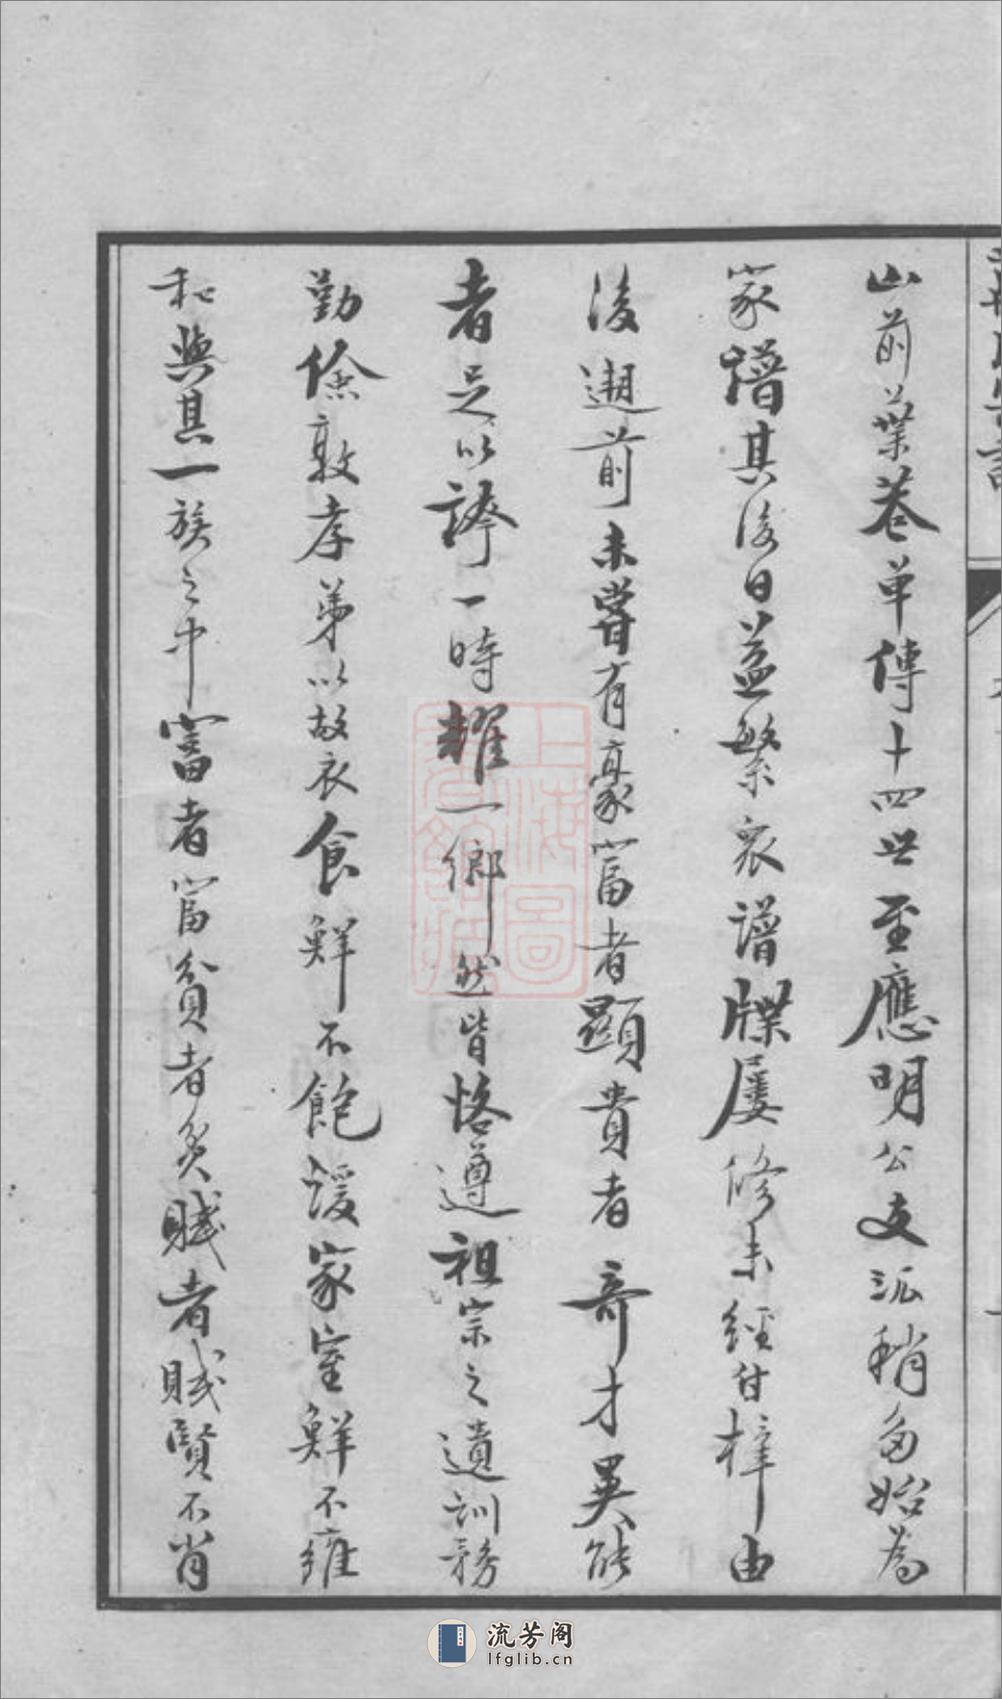 山前葉巷单傳十四世至應明公支派稍多始為
家譜其後日益繁衆譜牒屢修未經付梓由
後遡前未嘗有豪富者顯貴者奇才異能
者足以誇一時耀一鄉然皆恪遵祖宗之遺訓務
勤儉敦孝弟以故衣食鮮不飽煖家室鮮不雍
和與其一族之中富者富貧者貧賤者賤賢不肖
上海圖
流芳阁
lfglib.cn